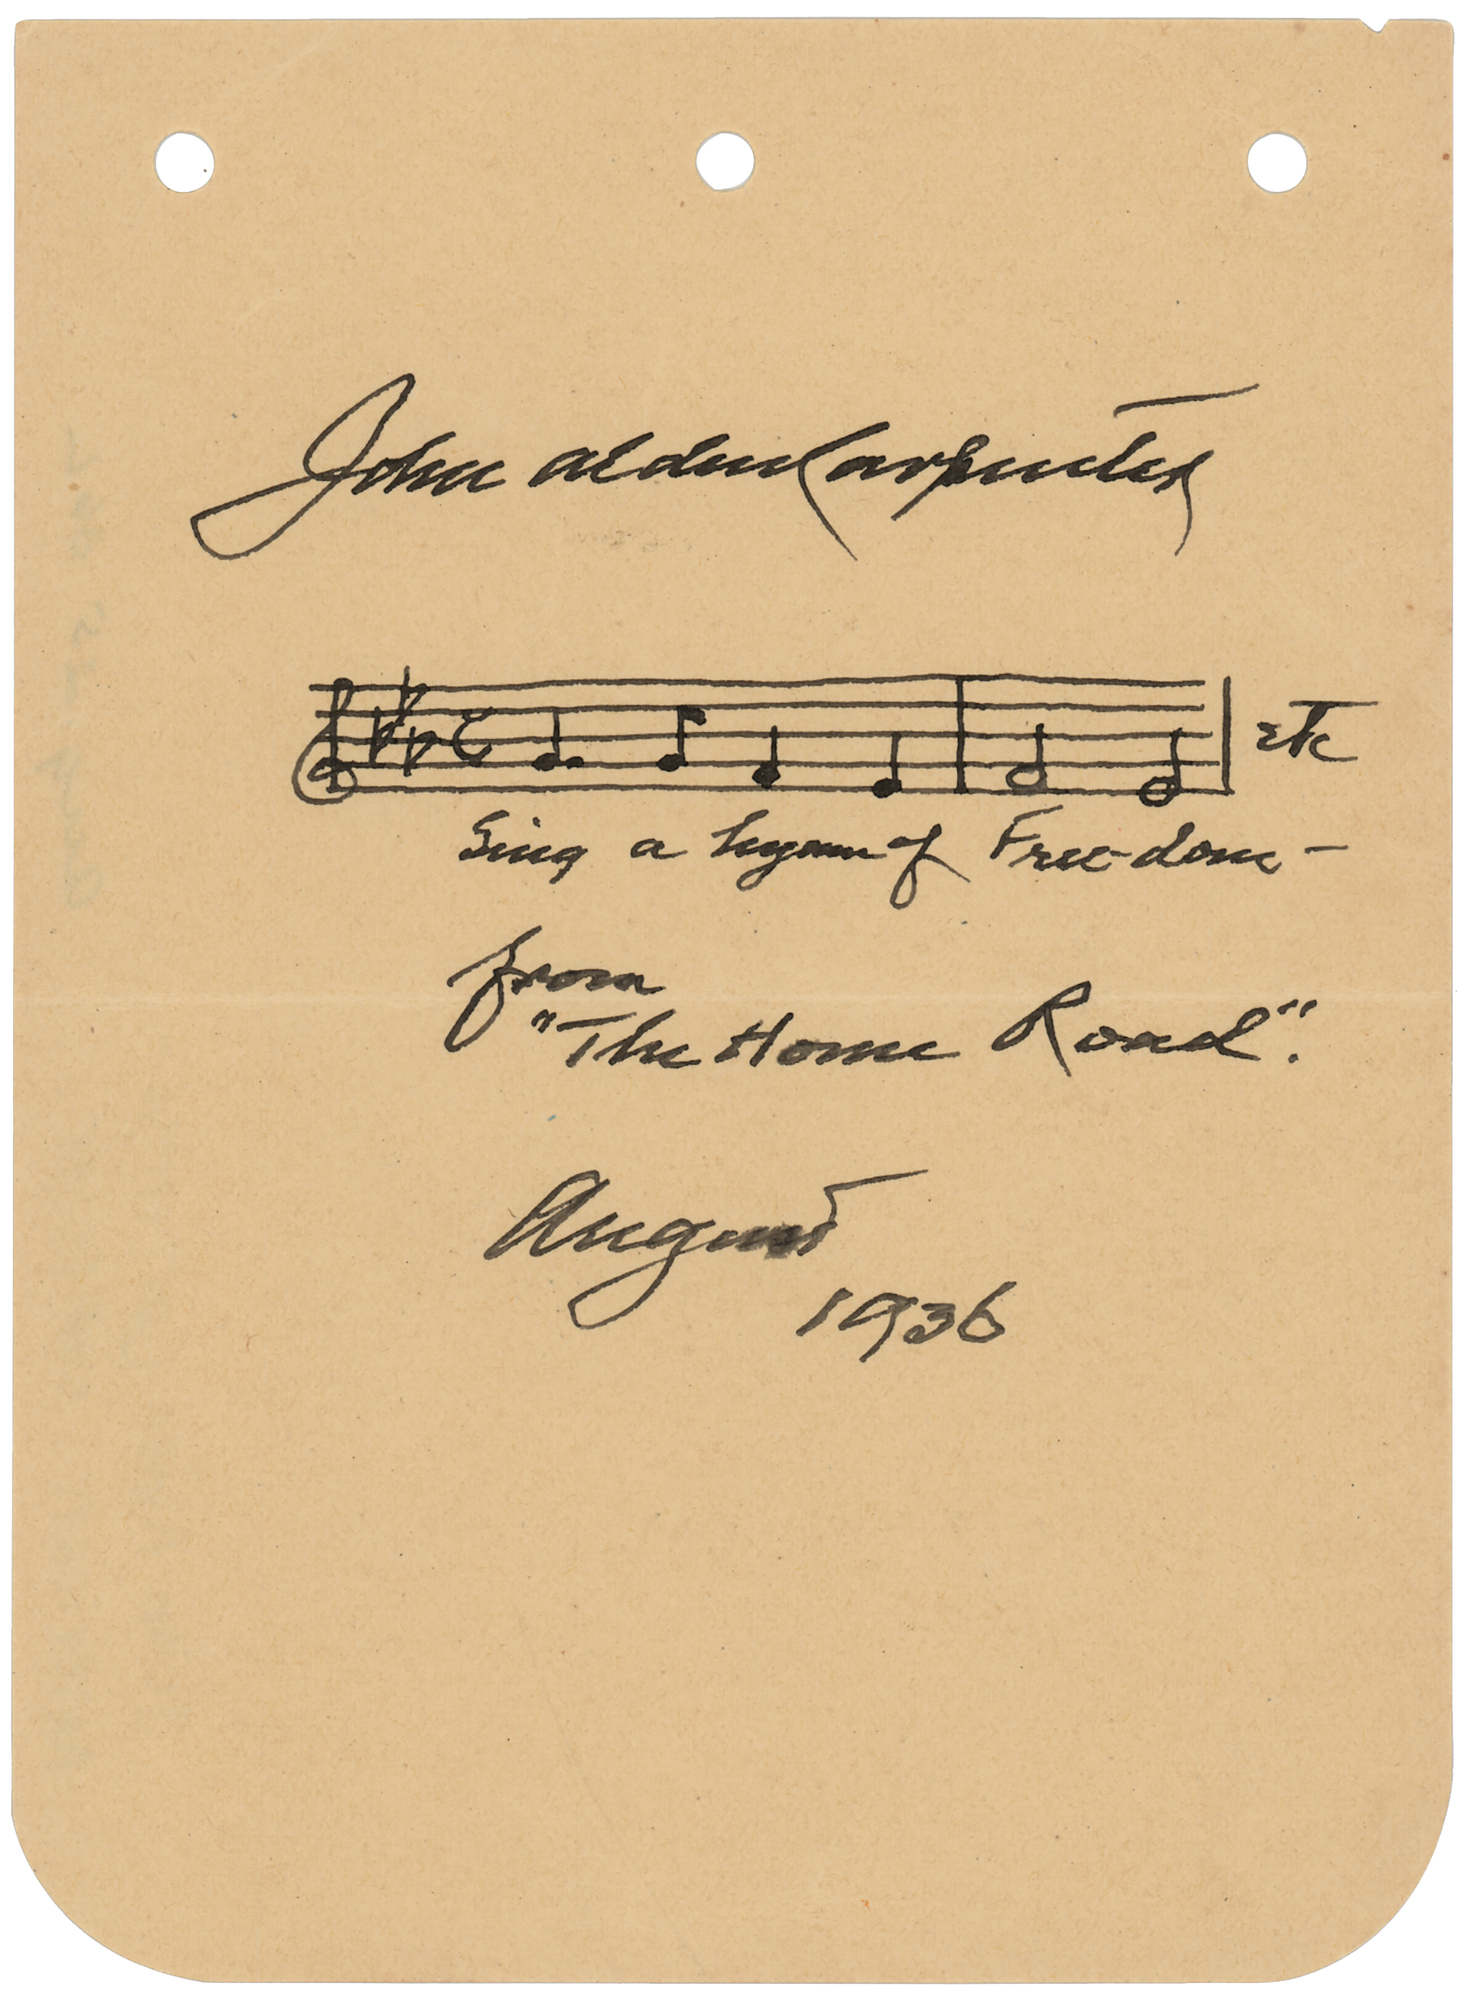 John Alden Carpenter
etc
Sing a hymn of Free-dom -
from
"The Home Road".
August
1936